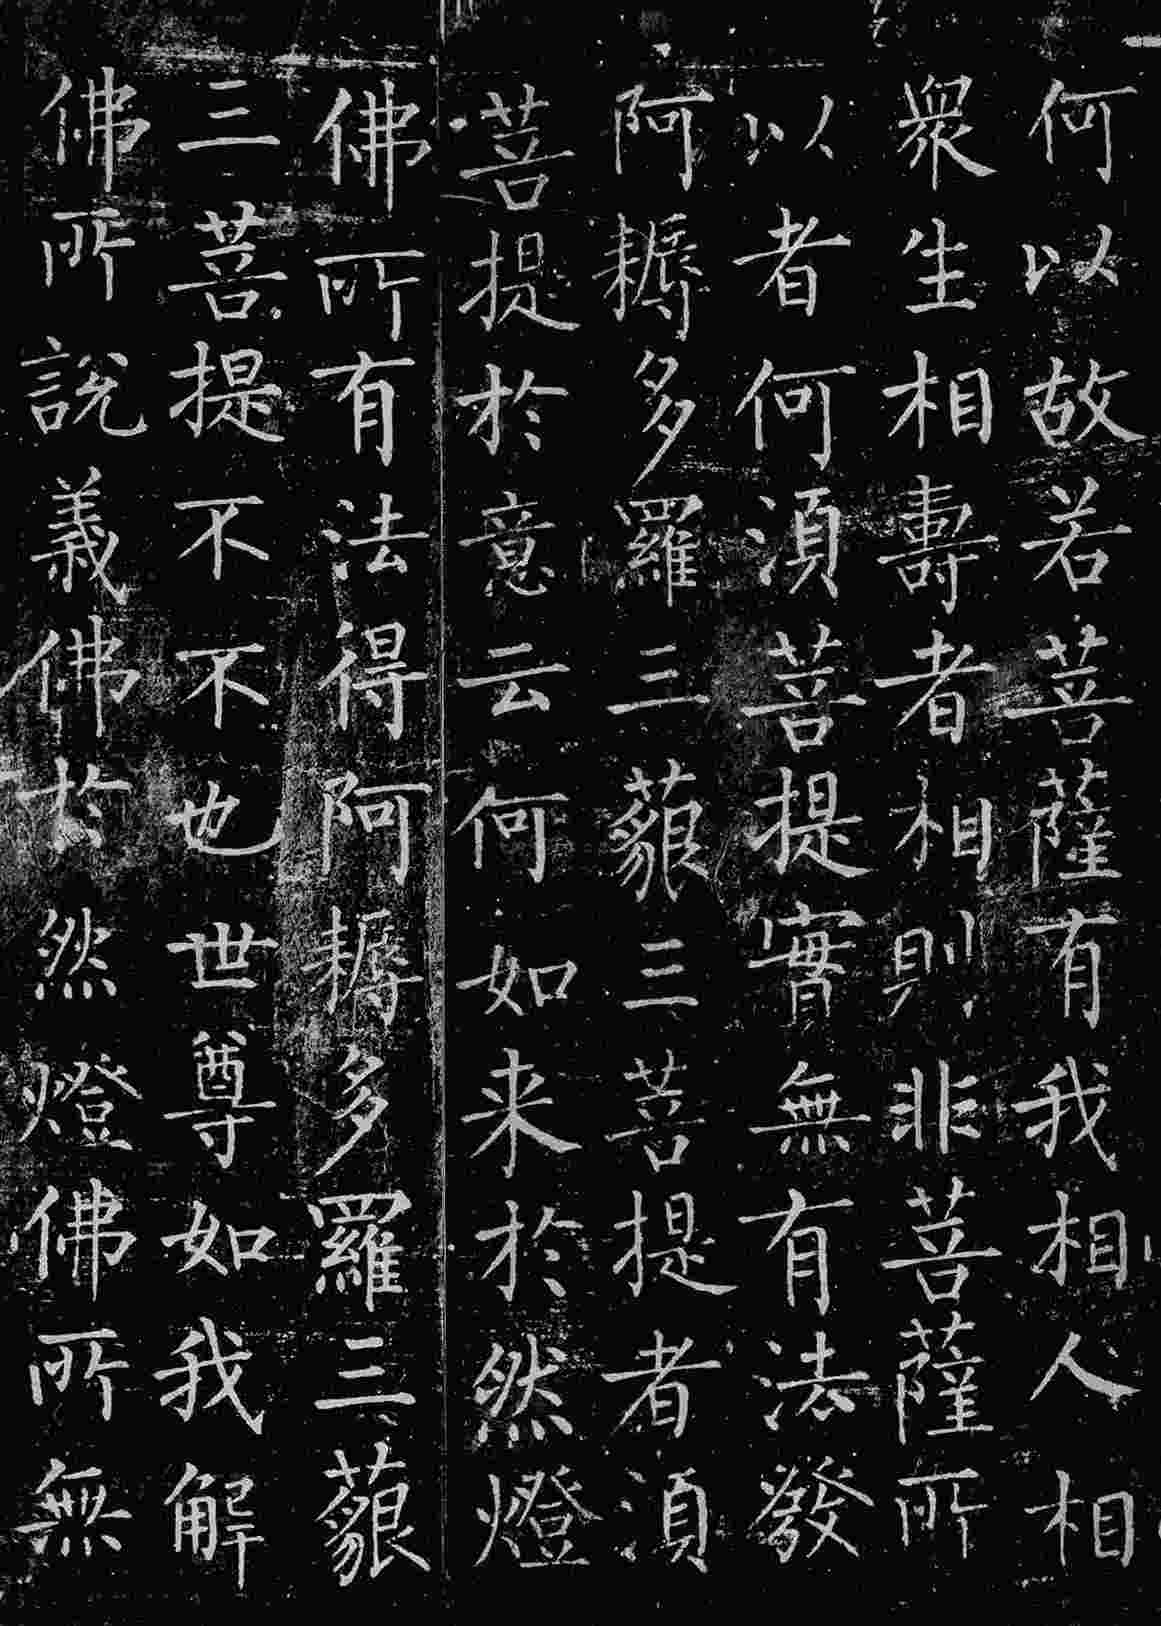 何以故若菩薩有我相人相
衆生相壽者相則非菩薩所
以者何湏菩提實無有法發
阿耨多羅三藐三菩提者湏
菩提於意云何如来於然燈
佛所有法得阿耨多羅三藐
三菩提不不也世尊如我解
佛所說義佛於然燈佛所無